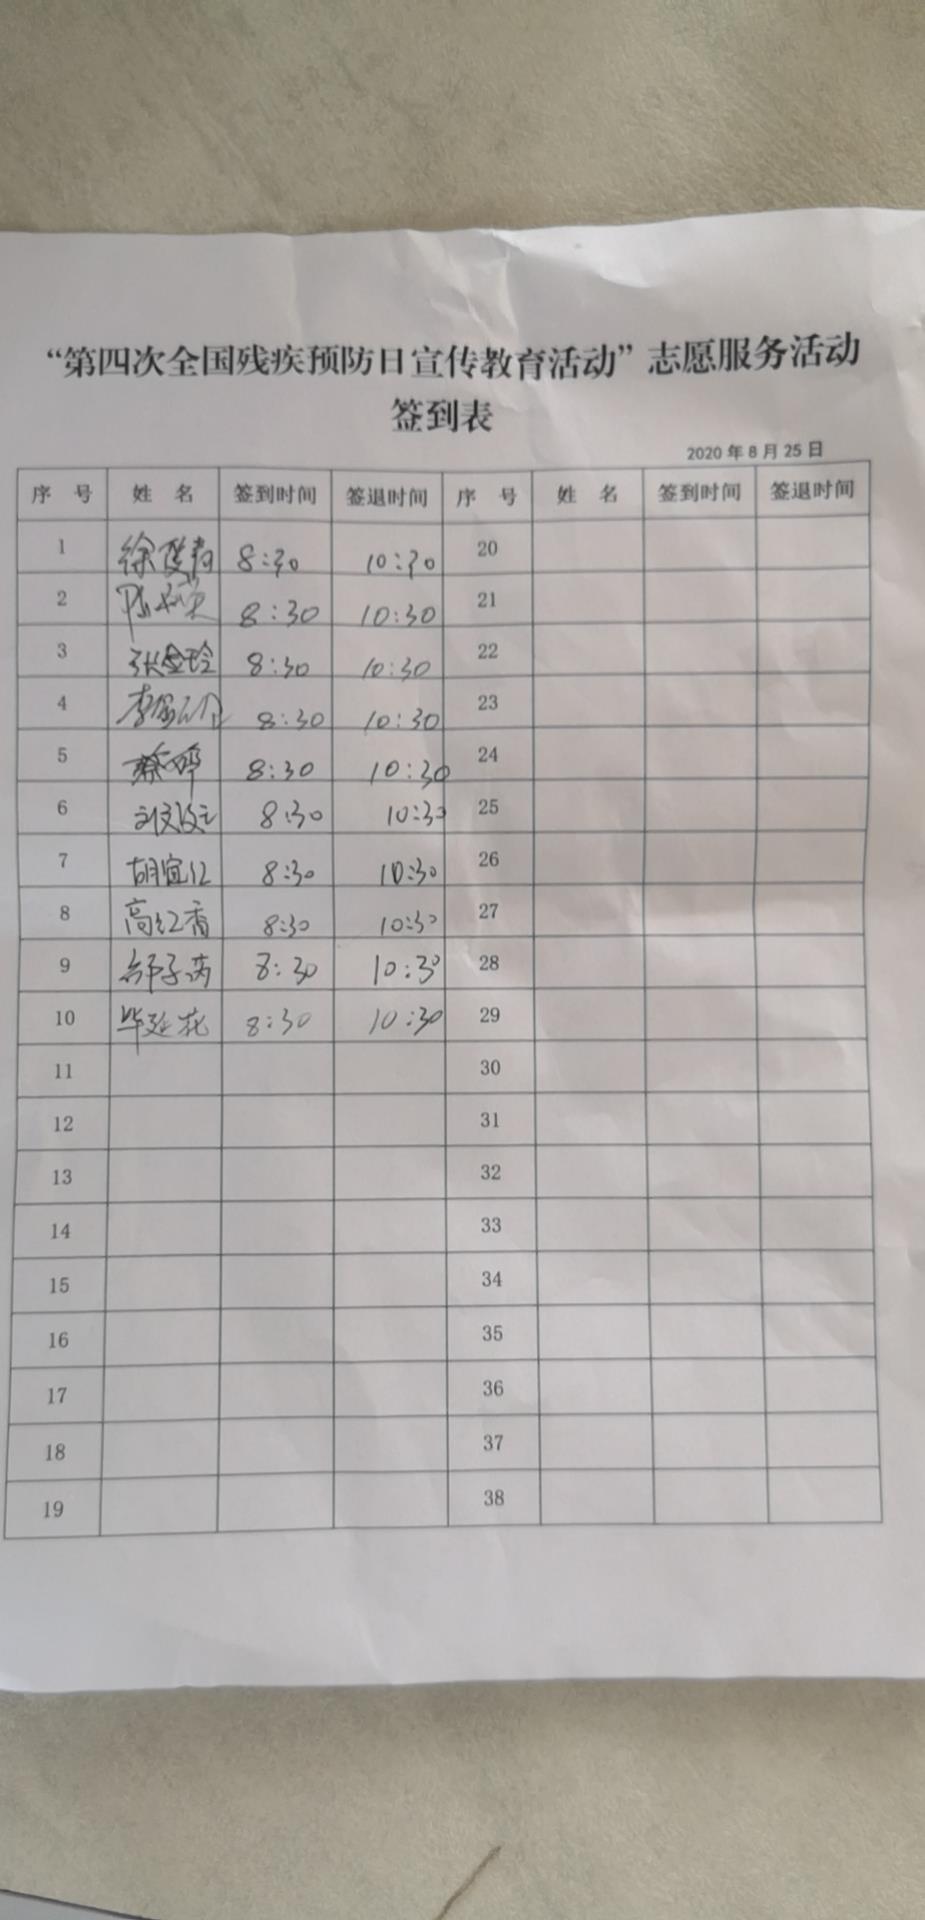 “第四次全国残疾预防日宣传教育活动”志愿服务活动
签到表
2020年8月25日
序 号 姓 名 签到时间 签退时间 序 号 姓 名 签到时间 签退时间
1 徐 8:30 10:30 20
2 陈 8:30 10:30 21
3 张金玲 8:30 10:30 22
4 李 8:30 10:30 23
5 蔡晔 8:30 10:30 24
6 刘 8:30 10:30 25
7 胡宜仁 8:30 10:30 26
8 高红香 8:30 10:30 27
9 8:30 10:30 28
10 毕延花 8:30 10:30 29
11 30
12 31
13 32
14 33
15 34
16 35
17 36
18 37
19 38